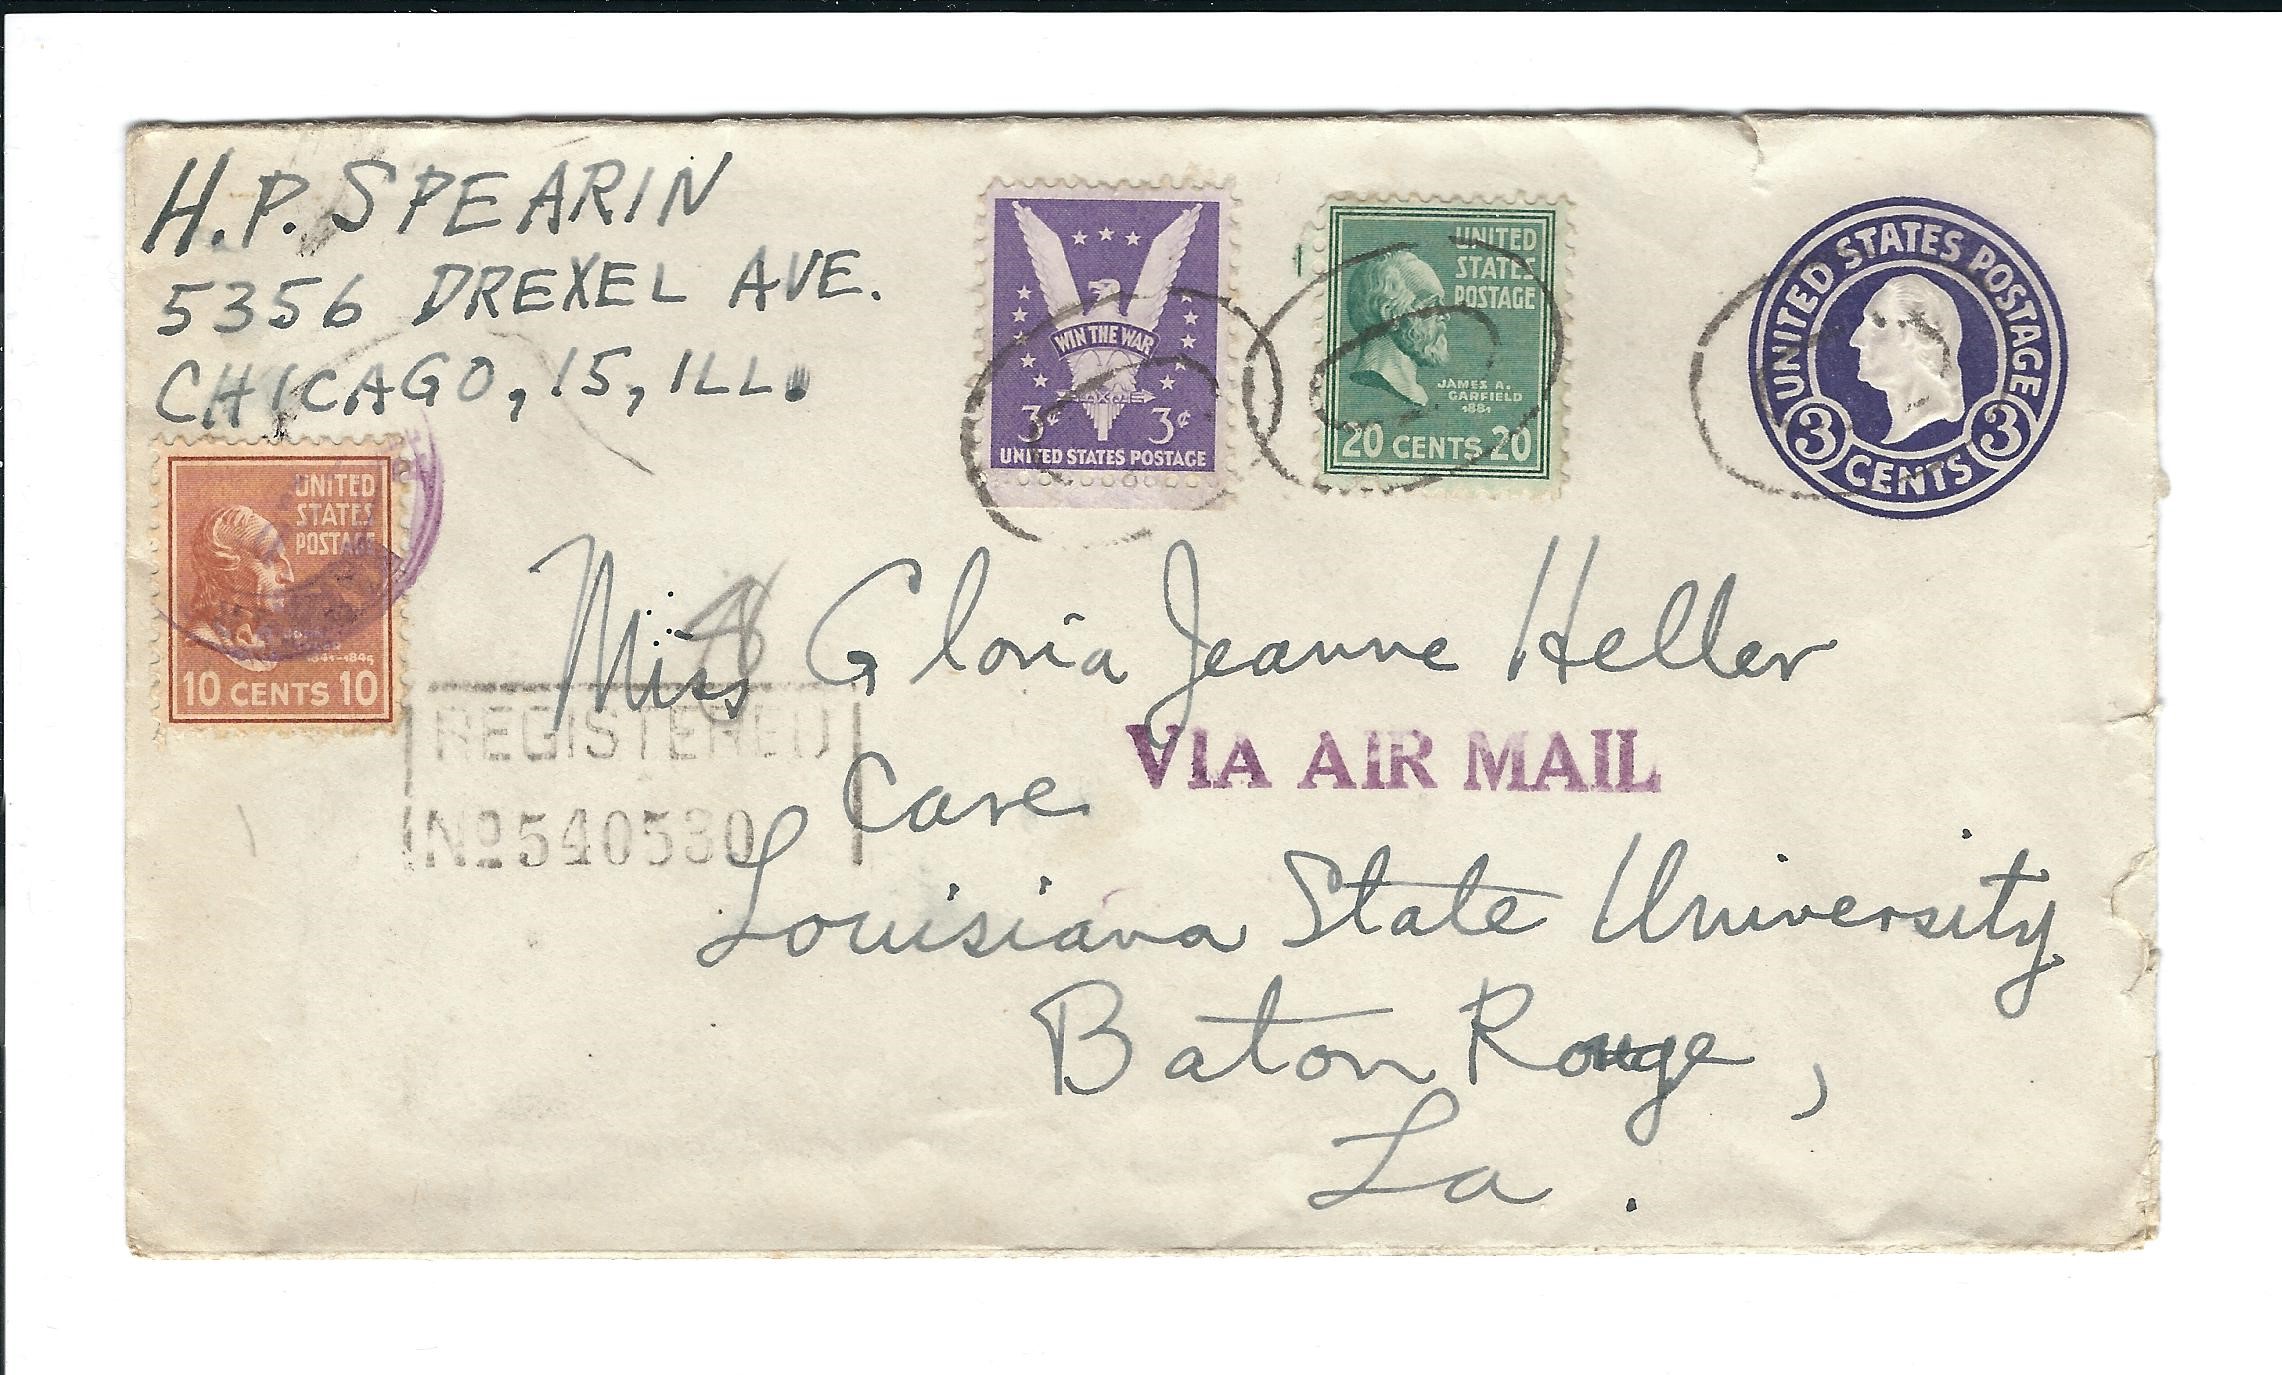 H.P. SPEARIN
5356 DREXEL AVE.
CHICAGO, 15, ILL.
WIN THE WAR
3¢ 3¢
UNITED STATES POSTAGE
UNITED
STATES
POSTAGE
JAMES A.
GARFIELD
1881
20 CENTS 20
UNITED STATES POSTAGE
3 CENTS 3
UNITED
STATES
POSTAGE
1841-1845
10 CENTS 10
Miss Gloria Jeanne Heller
REGISTERED
VIA AIR MAIL
Care
No 540530
Louisiana State University
Baton Rouge,
La.